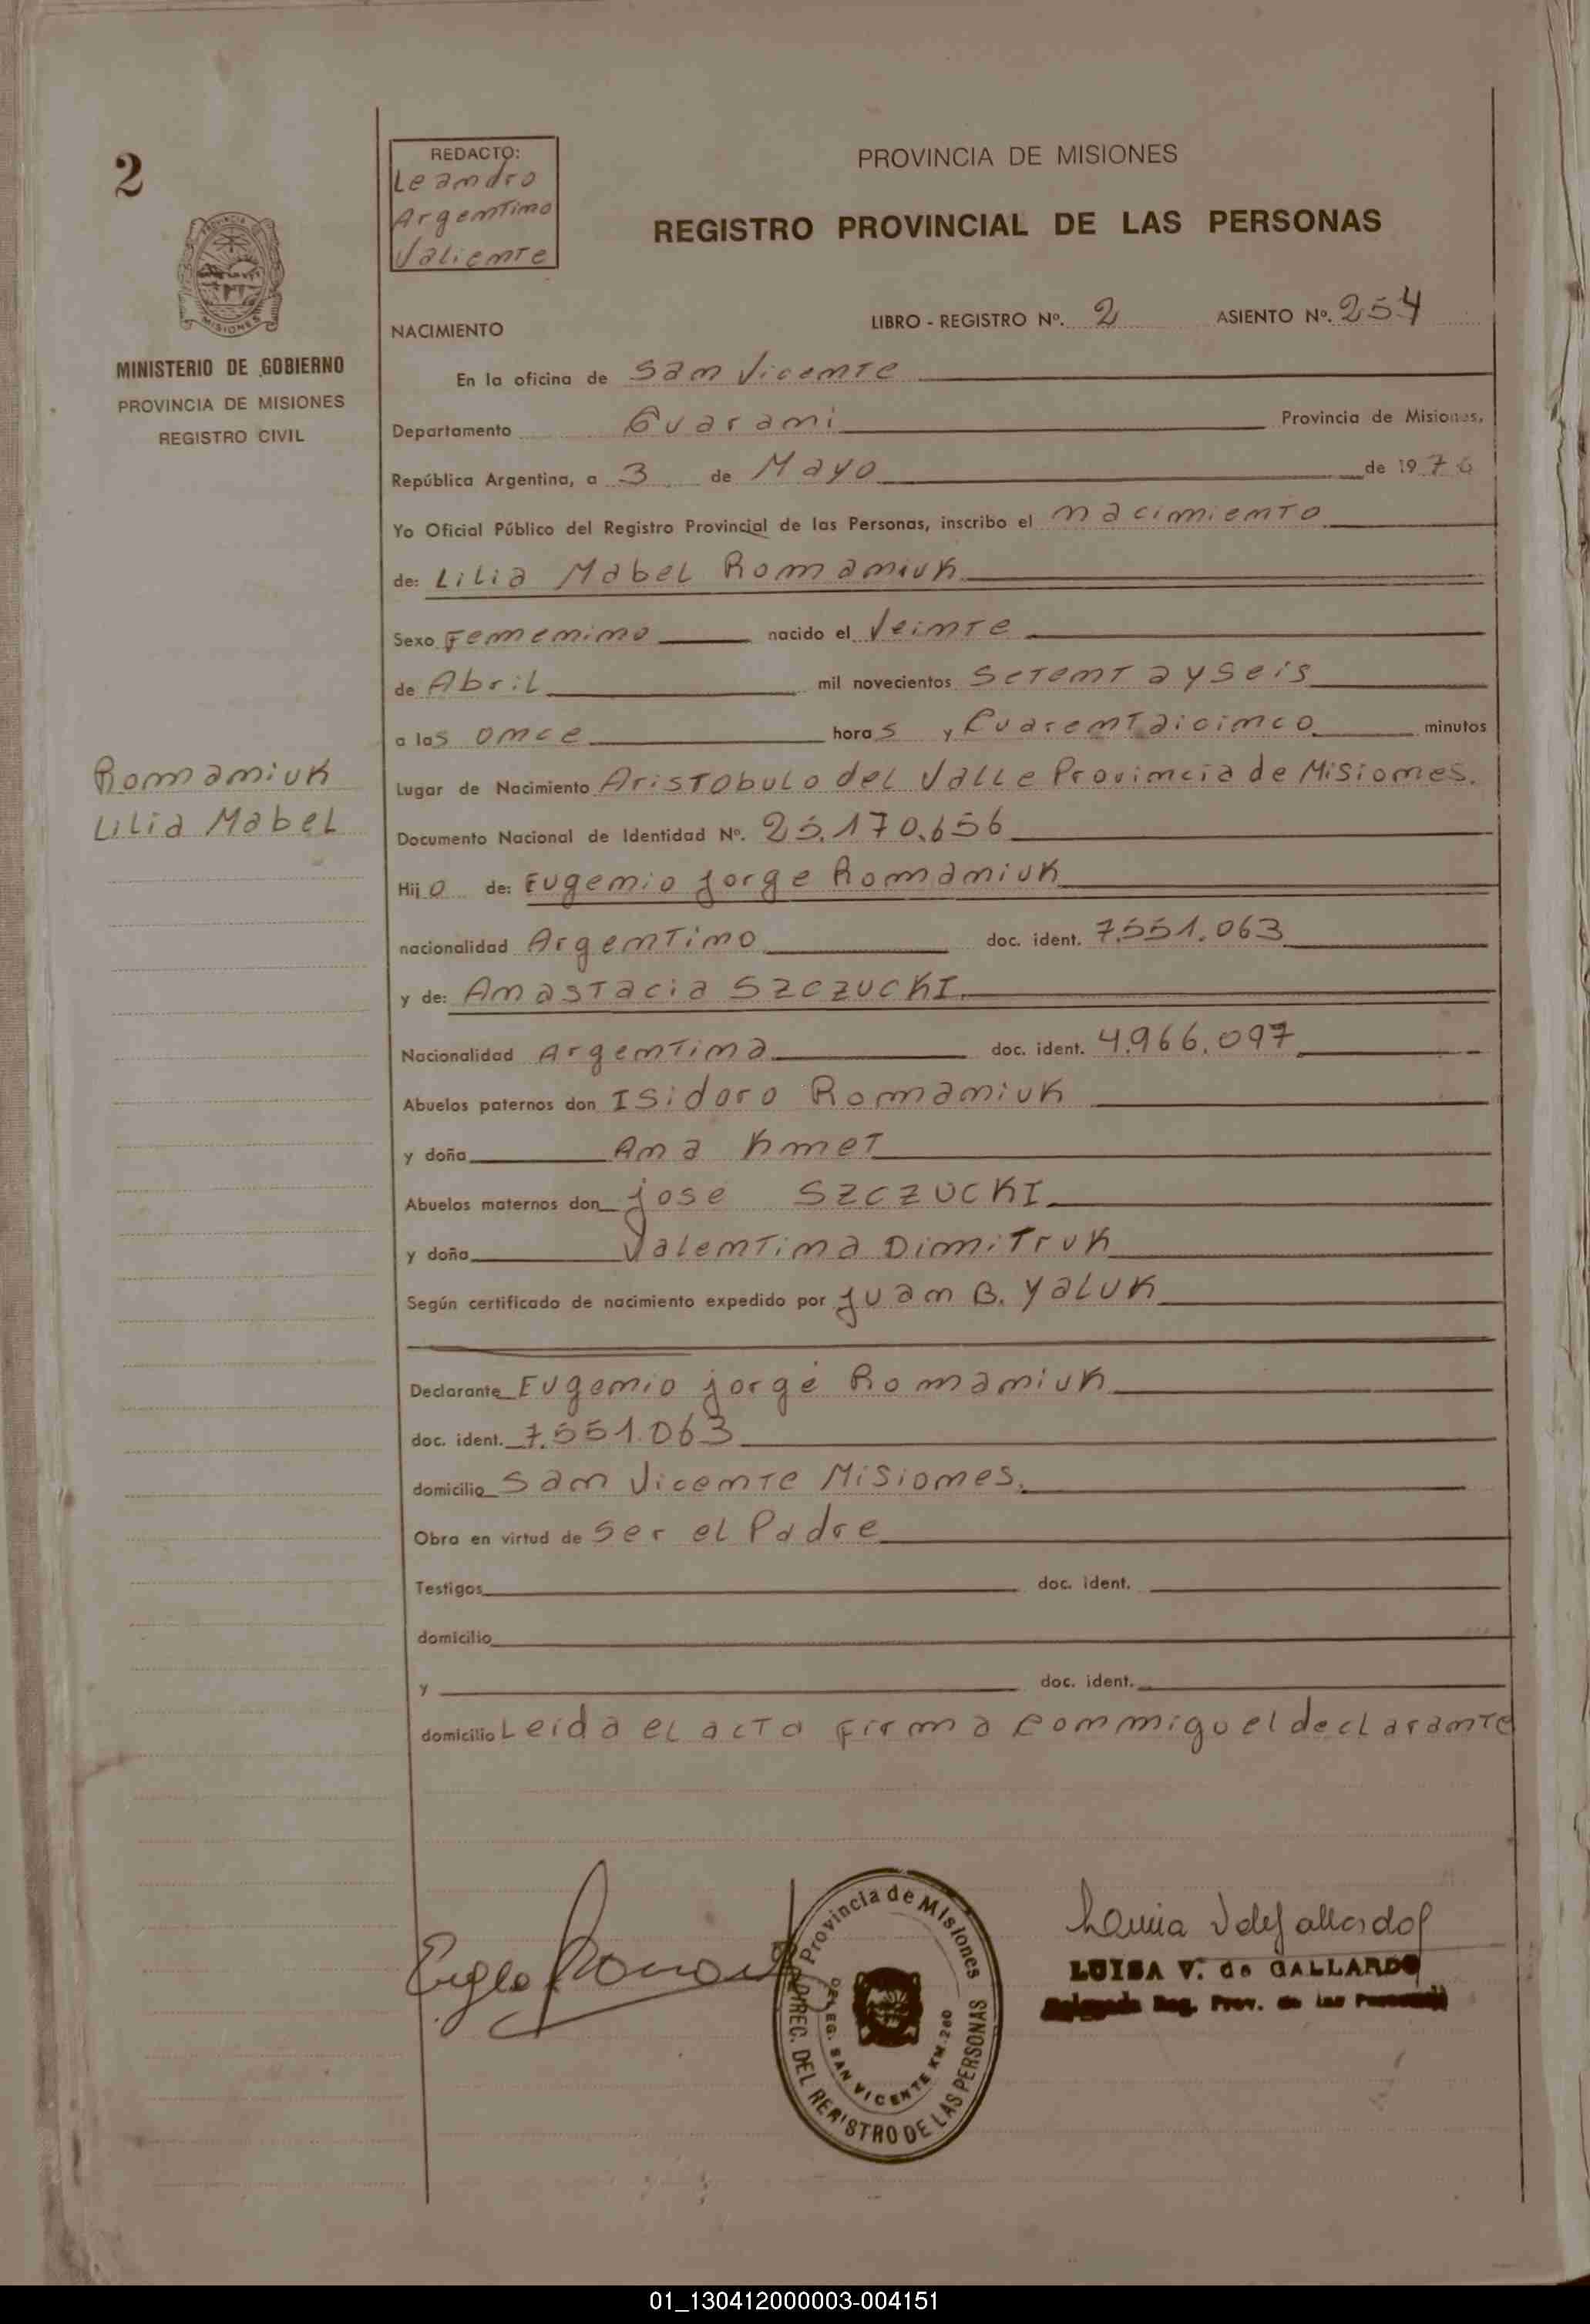 2
REDACTO:
Leandro
Argentino
Valiente
PROVINCIA DE MISIONES
REGISTRO PROVINCIAL DE LAS PERSONAS
PROVINCIA
MISIONES
MINISTERIO DE GOBIERNO
PROVINCIA DE MISIONES
REGISTRO CIVIL
NACIMIENTO
LIBRO - REGISTRO Nº. 2 ASIENTO Nº. 254
En la oficina de San Vicente
Departamento Guarani Provincia de Misiones,
República Argentina, a 3 de Mayo de 1976
Yo Oficial Público del Registro Provincial de las Personas, inscribo el nacimiento
de: Lilia Mabel Romaniuk
Sexo Femenino nacido el Veinte
de Abril mil novecientos Setenta y Seis
a las once horas y Cuarentaicinco minutos
Romaniuk
Lilia Mabel
Lugar de Nacimiento Aristobulo del Valle Provincia de Misiones.
Documento Nacional de Identidad Nº. 25.170.656
Hijo de: Eugenio Jorge Romaniuk
nacionalidad Argentino doc. ident. 7.551.063
y de: Anastacia SZCZUCKI.
Nacionalidad Argentina doc. ident. 4.966.097
Abuelos paternos don Isidoro Romaniuk
y doña Ana Kmet
Abuelos maternos don Jose SZCZUCKI
y doña Valentina Dimitruk
Según certificado de nacimiento expedido por Juan B. Yaluk
Declarante Eugenio Jorge Romaniuk
doc. ident. 7.551.063
domicilio San Vicente Misiones.
Obra en virtud de Ser el Padre
Testigos doc. ident.
domicilio
y doc. ident.
domicilio Leida el acta firma conmigo el declarante
Provincia de Misiones
DIREC. DEL REGISTRO DE LAS PERSONAS
DELEG. SAN VICENTE KM. 260
LUISA V. de GALLARDO
Reg. Prov. de las
01_130412000003-004151